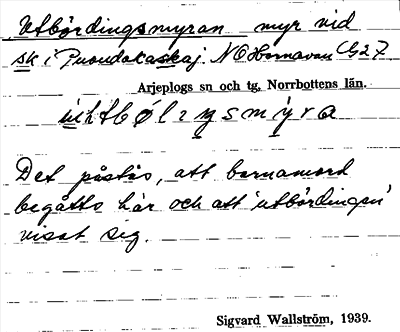 Utbördingsmyran myr vid
sk i Puoudakaskaj. NO Hornavan G27
Arjeplogs sn och tg, Norrbottens län.
Det påstås, att barnamord
begåtts här och att 'utbördingen'
visat sig.
Sigvard Wallström, 1939.